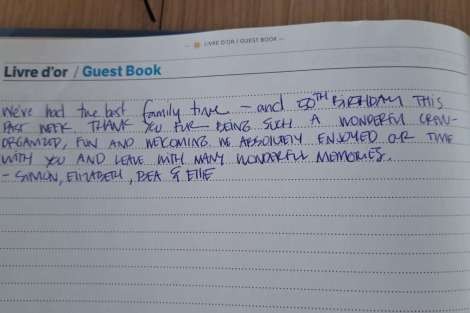 LIVRE D'OR / GUEST BOOK
Livre d'or / Guest Book
We've had the best family time – and 50TH BIRTHDAY THIS
PAST WEEK. THANK YOU FOR BEING SUCH A WONDERFUL CREW-
ORGANIZED, FUN AND WELCOMING. WE ABSOLUTELY ENJOYED OUR TIME
WITH YOU AND LEAVE WITH MANY WONDERFUL MEMORIES.
- SIMON, ELIZABETH, BEA & ELLIE